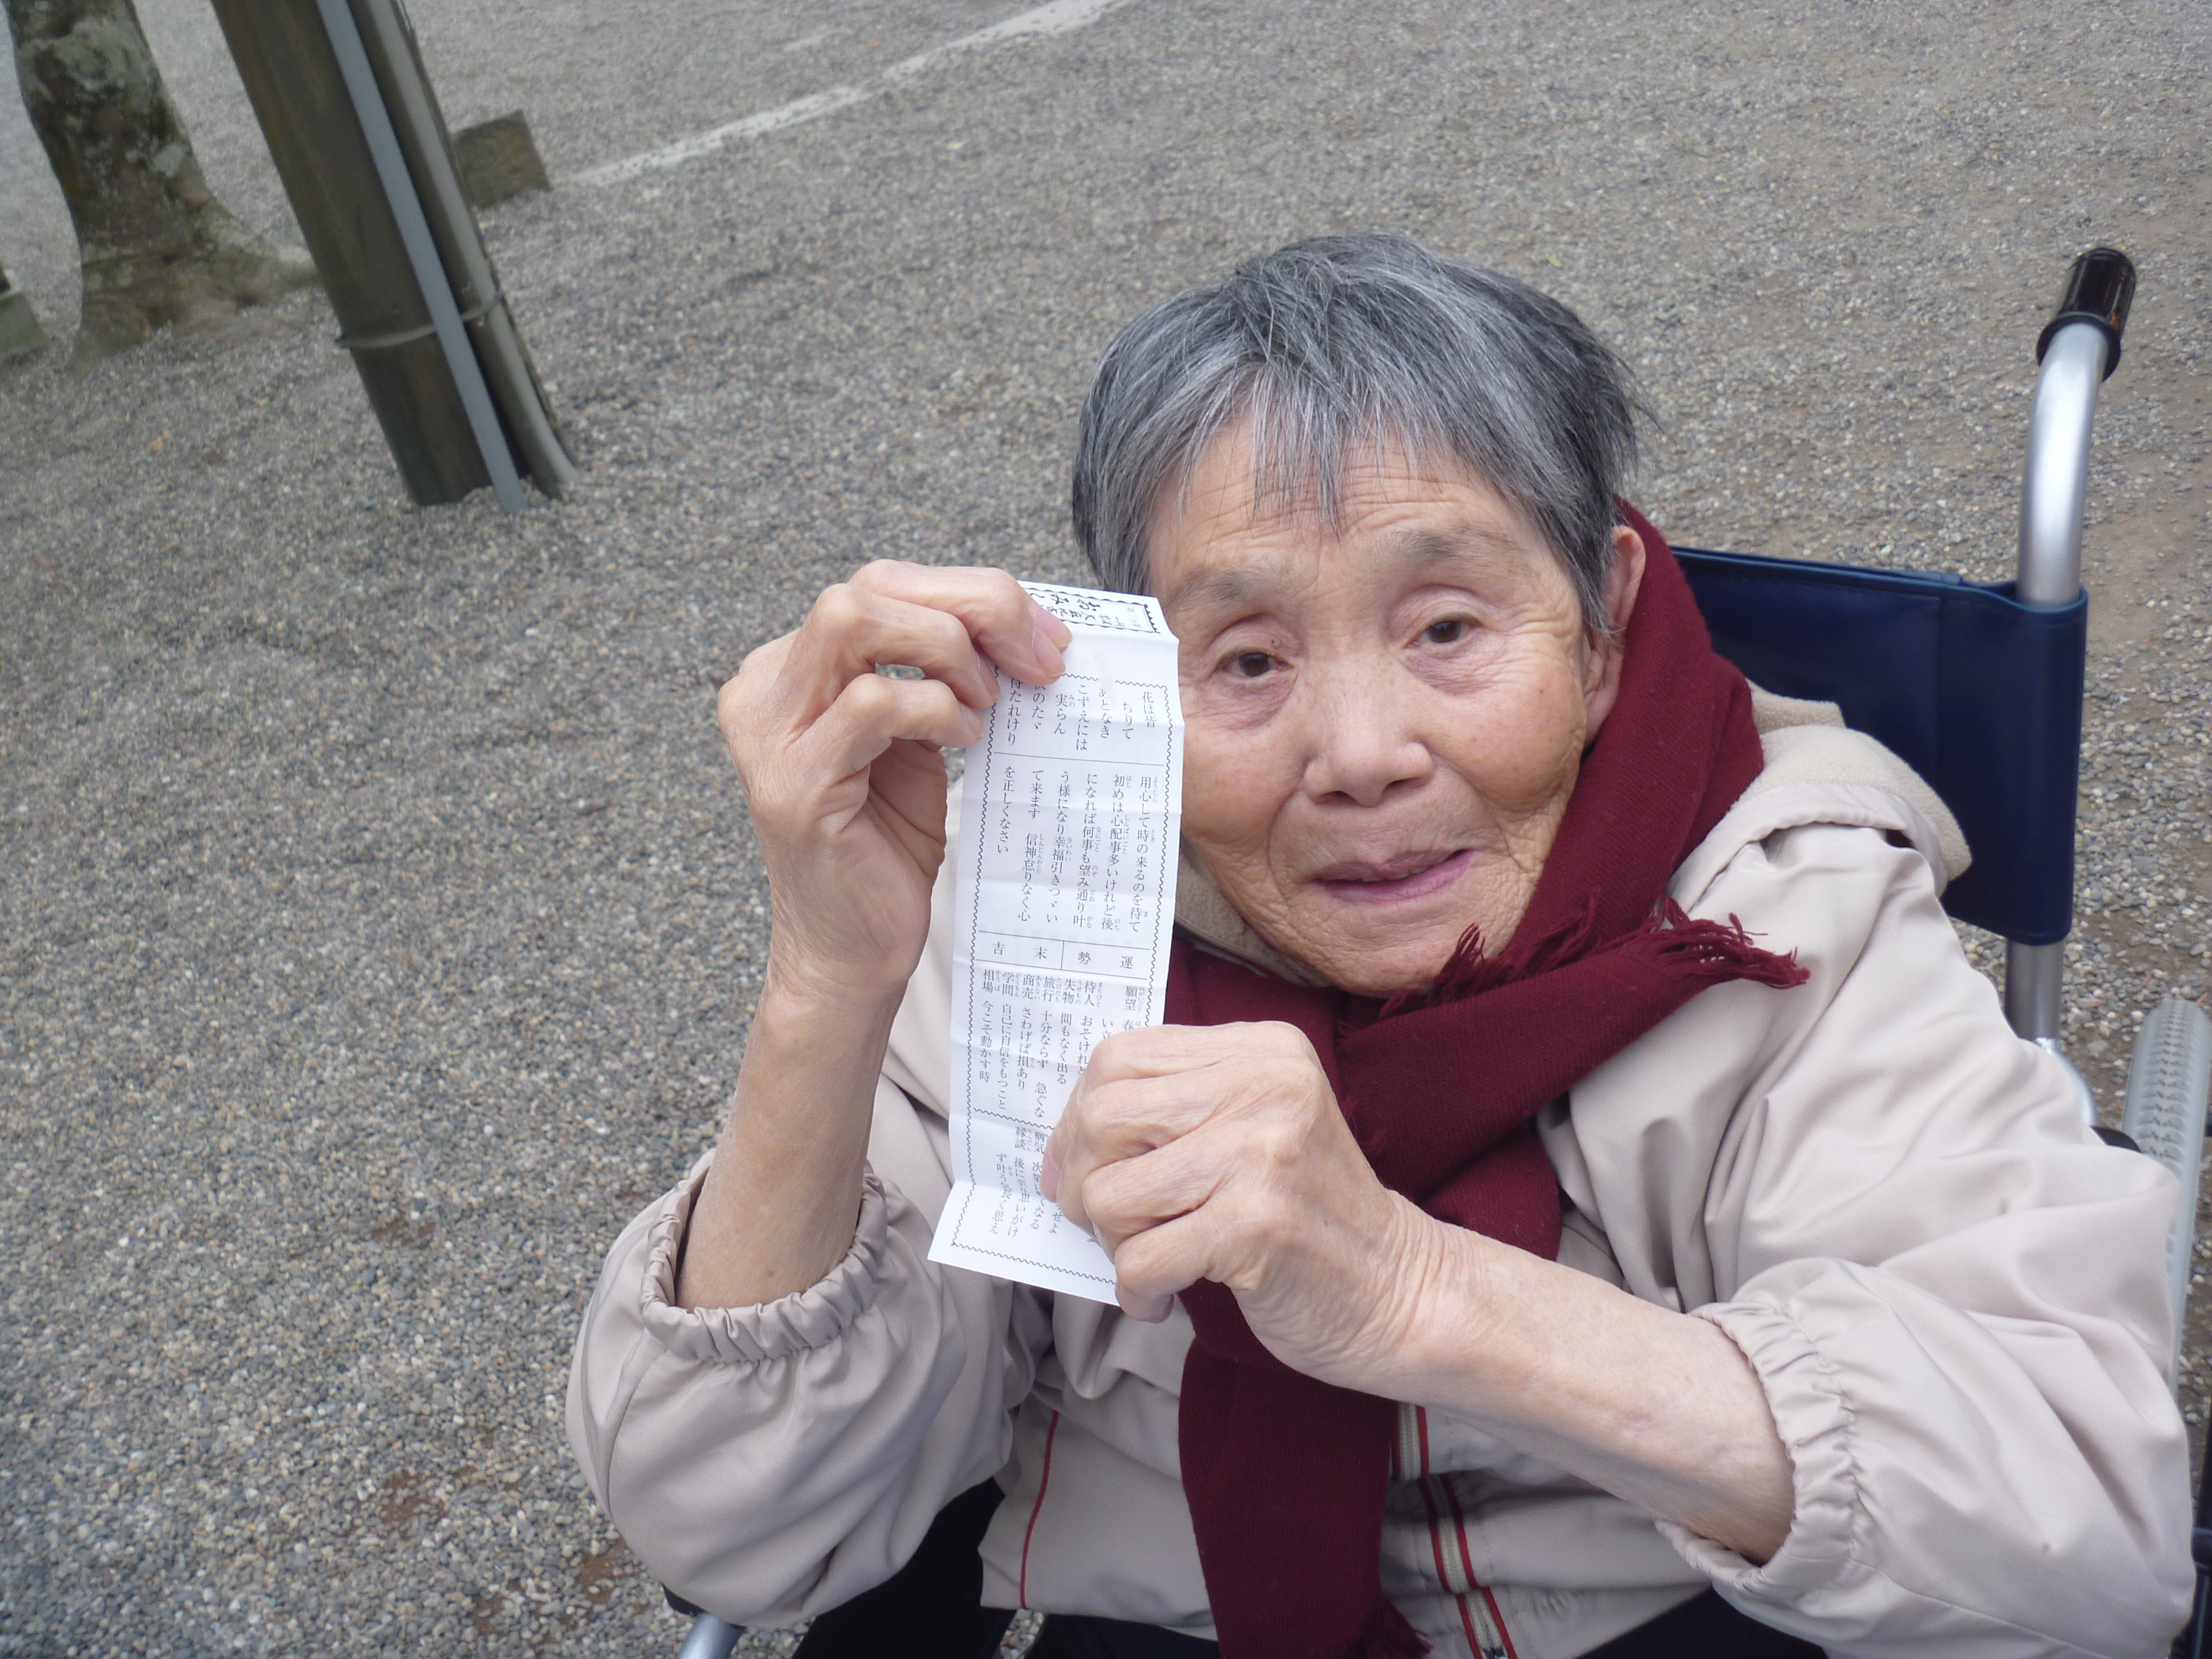 花は皆
ちりて
あとなき
こずえには
実らん
のたゞ
待たれけり
用心して時の来るのを待て
初めは心配事多いけれど後
になれば何事も望み通り叶
う様になり幸福引きつゞい
て来ます　信神怠りなく心
を正しくなさい
運勢
末吉
願望　春
待人　おそけれど
失物　間もなく出る
旅行　十分ならず　急ぐな
商売　さわげば損あり
学問　自己に自信をもつこと
相場　今こそ動かす時
病気
縁談